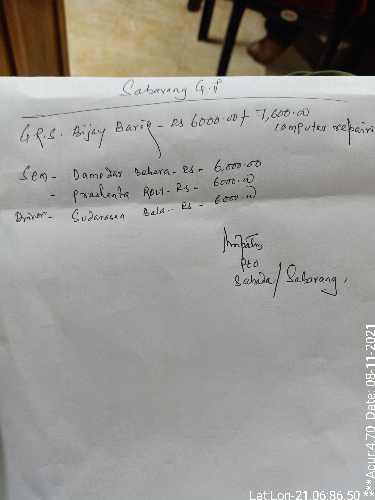 Sabarang G.P
G.R.S. Bijay Barig - Rs 6000.00 + 7,600.00
computer repairing
Sem - Damodar Behera - Rs - 6,000.00
- Prashanta Rout - Rs - 6000.00
Driver - Sudarasan Bala - Rs - 6000.00
PEO
Sahada / Sabarang,
Lat:Lon-21.06:86.50 ***Acur:4.70 Date: 08-11-2021